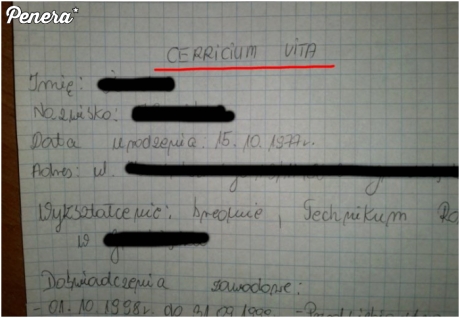 Penera*
CERRICIUM VITA
Imię:
Nazwisko:
Data urodzenia: 15.10.1977r.
Adres: ul.
Wykształcenie: Średnie, Technikum Ro
w
Doświadczenia zawodowe:
- 01.10.1998r. do 31.09.